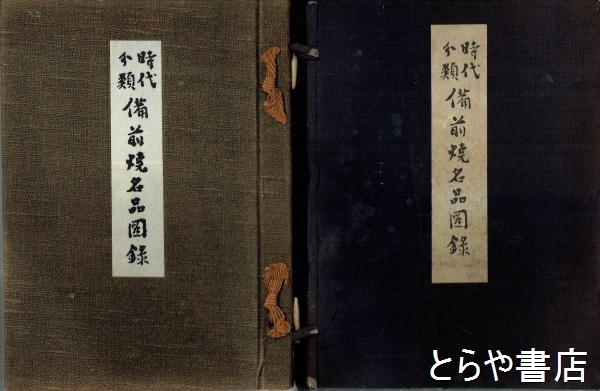 時代
分類
備前焼名品図録
時代
分類
備前焼名品図録
とらや書店